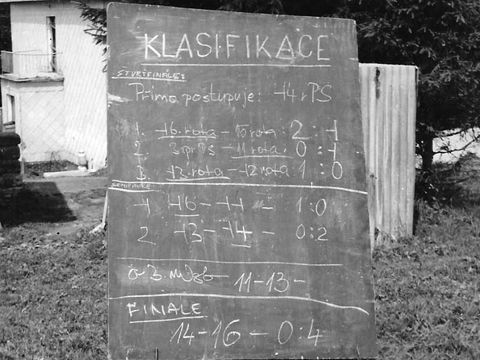 KLASIFIKACE
ČTVRTFINALE:
Přímo postupuje: 14 rPS
1. 16. rota - 10 rota: 2 : 1
2. 3 prPS - 11 rota: 0 : 1
3. 13. rota - 12 rota: 1 : 0
SEMIFINALE
1 16 - 11 - 1:0
2. 13 - 14 - 0:2
o 3. místo - 11-13-
FINALE
14-16 - 0:4